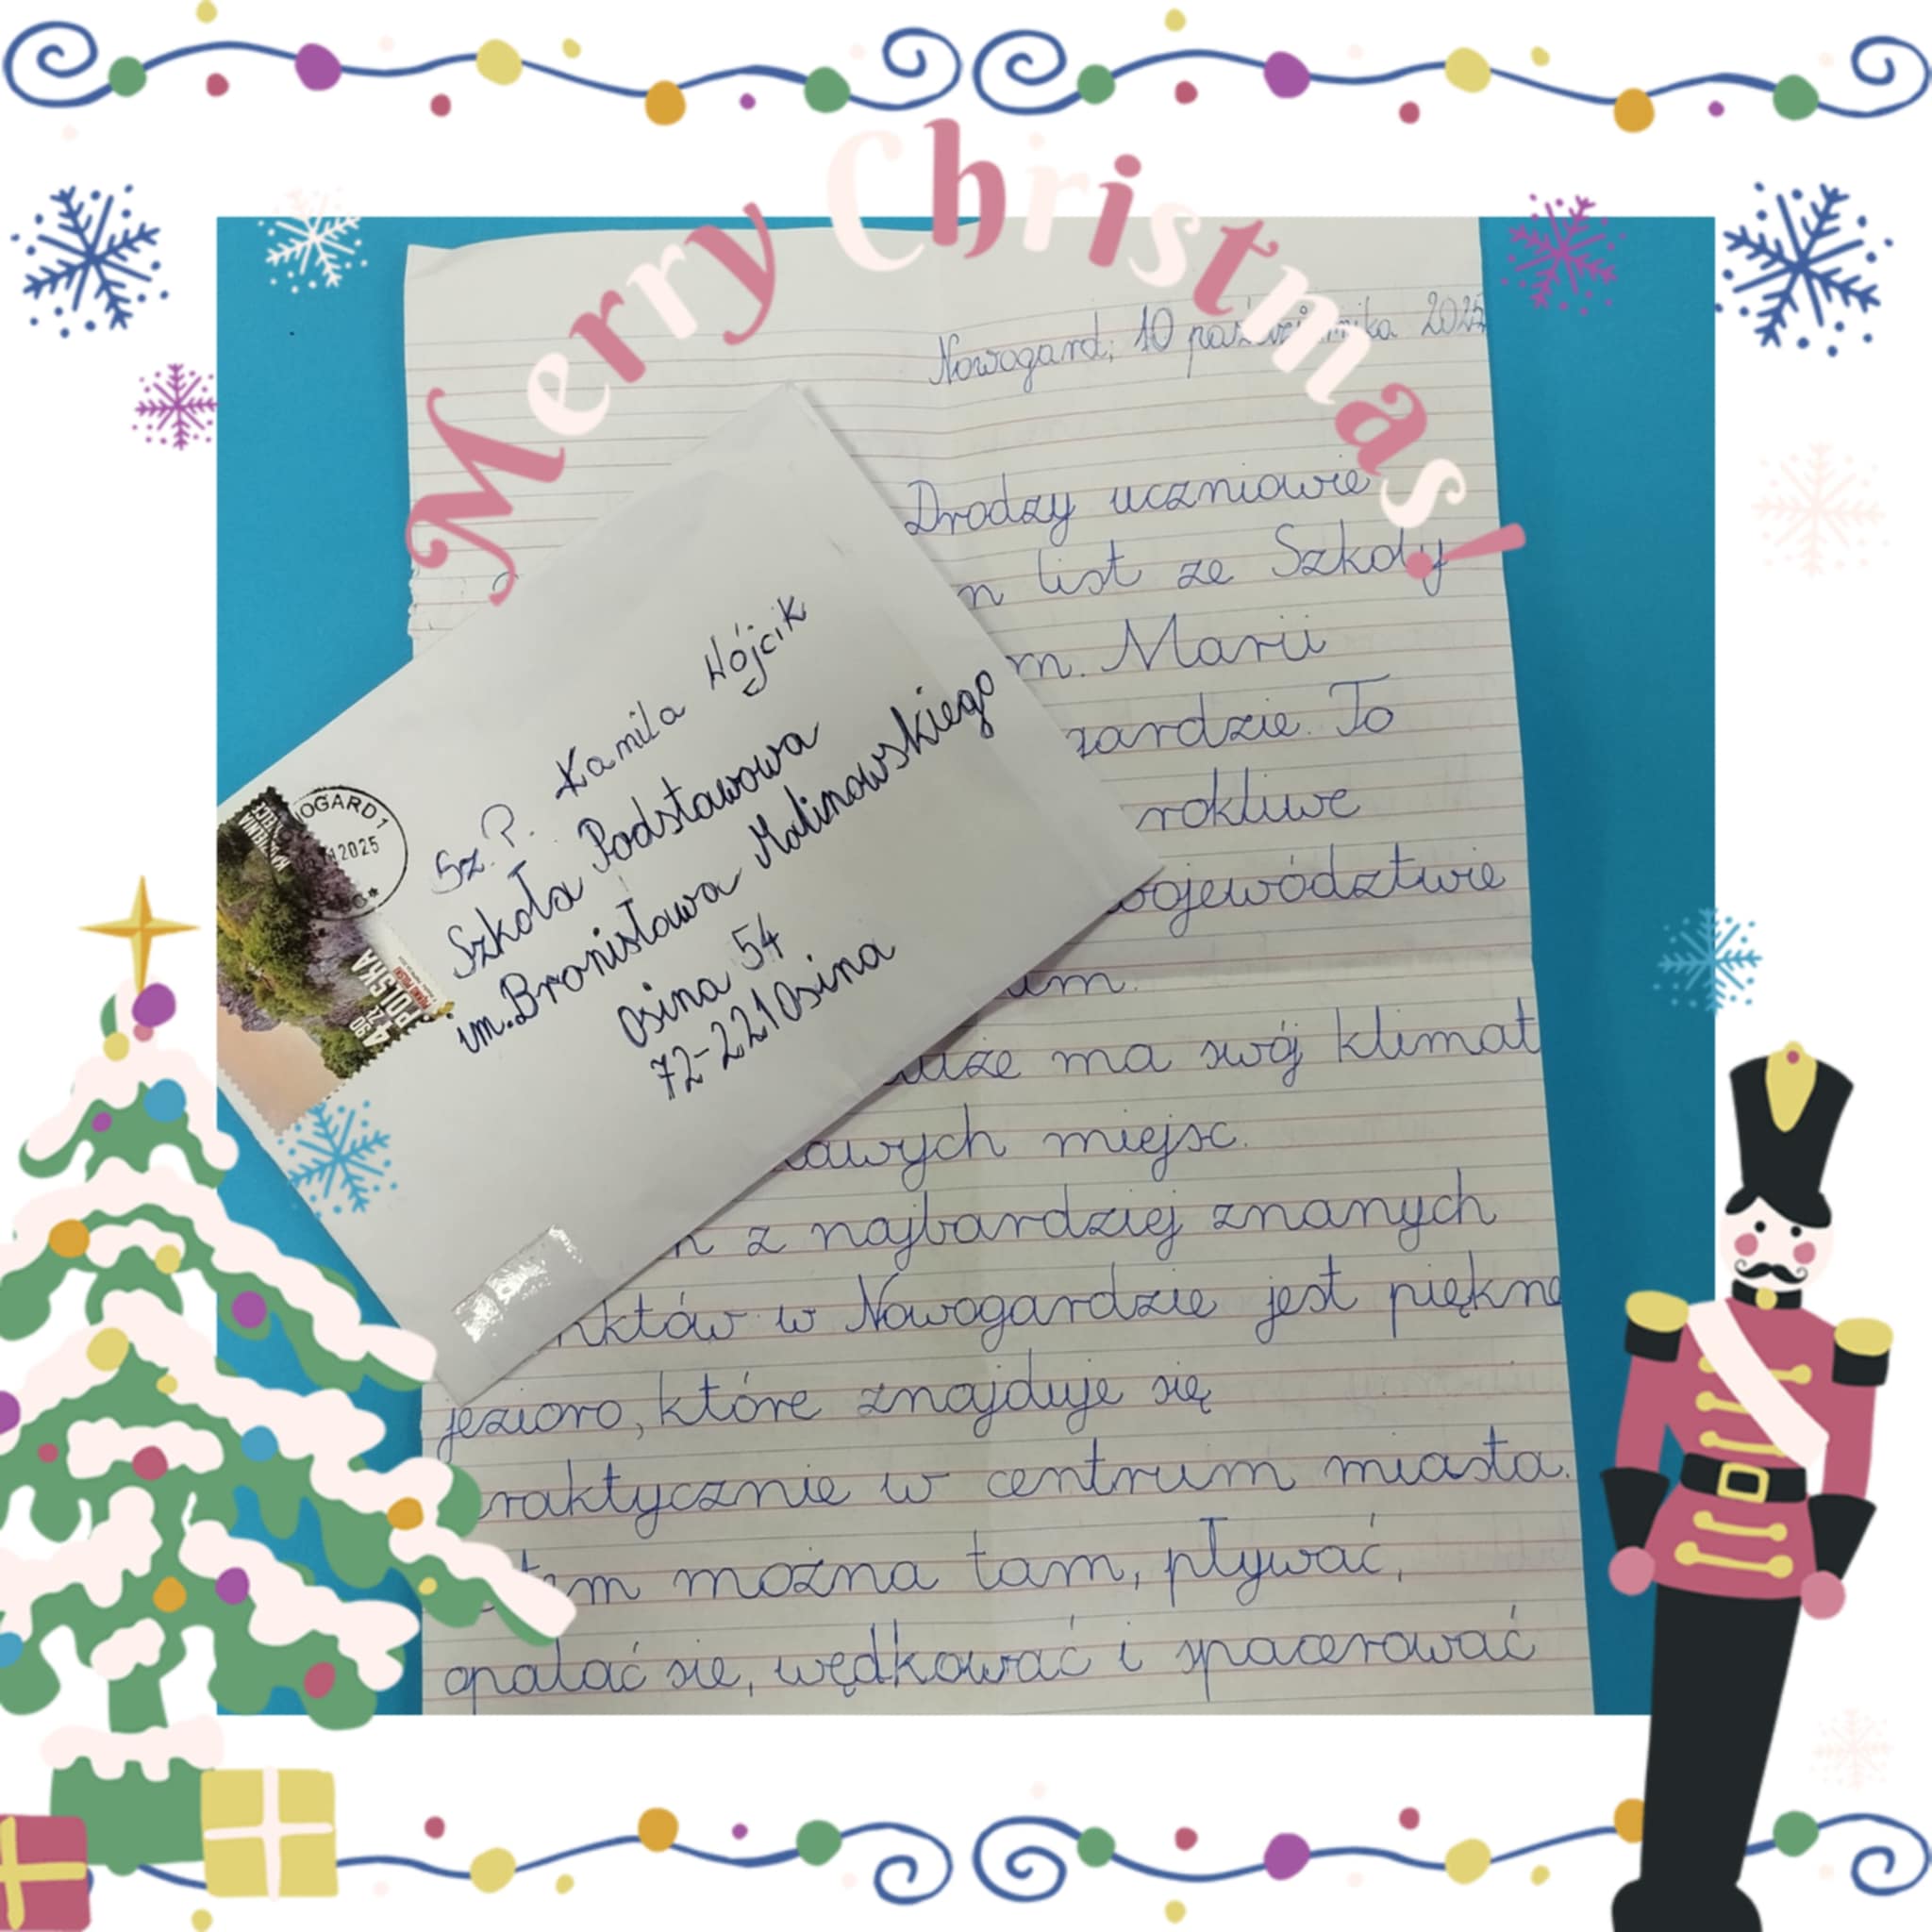 Merry Christmas!
Nowogard, 10 października 2025
Drodzy uczniowie
list ze Szkoły
m. Marii
gardzie. To
rokliwe
województwie
um.
duże ma swój klimat
awych miejsc.
z najbardziej znanych
nktów w Nowogardzie jest piękne
jezioro, które znajduje się
raktycznie w centrum miasta.
można tam, pływać,
opalać sie, wędkować i spacerować
Sz. P. Kamila Wójcik
Szkoła Podstawowa
im. Bronisława Malinowskiego
Osina 54
72-221 Osina
OGARD 1
2025
POLSKA
4,90 ZŁ